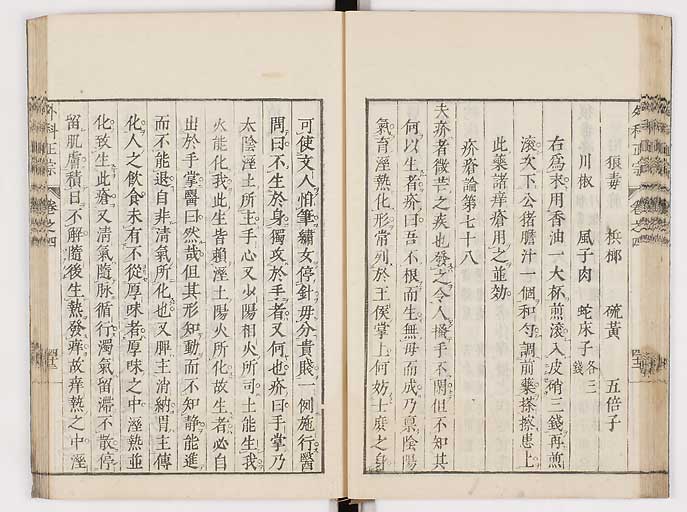 外科正宗 卷之四
狼毒 檳榔 硫黃 五倍子
川椒 風子肉 蛇床子各三錢
右爲末用香油一大杯煎滾入皮硝三錢再煎
滾次下公猪膽汁一個和勻調前藥搽擦患上
此藥諸痒瘡用之並効
疥瘡論第七十八
夫疥者微芒之疾也發之令人搔手不閒但不知其
何以生者疥曰吾不根而生無母而成乃稟陰陽
氣育溼熱化形常列於王侯掌上何妨士庶之身
可使文人怕筆繡女停針毋分貴賤一例施行醫
問曰不生於身獨攻於手者又何也疥曰手掌乃
太陰溼土所主手心又少陽相火所司土能生我
火能化我此生皆賴溼土陽火所化故生者必自
出於手掌醫曰然哉但其形知動而不知靜能進
而不能退自非淸氣所化也又脾主消納胃主傳
化人之飮食未有不從厚味者厚味之中溼熱並
化致生此瘡又淸氣隨脉循行濁氣留滯不散停
留肌膚積日不解隨後生熱發痒故痒熱之中溼
外科正宗 卷之四